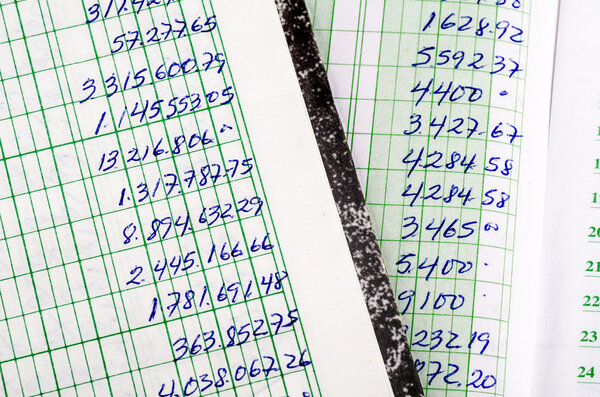 57.277.65
3.315.600.79
1.145.553.05
13.216.806.00
1.317.787.75
8.894.632.29
2.445.166.66
1.781.691.48
363.852.75
4.038.067.26
1628.92
5592 37
4400 .
3.427.67
4.284.58
4.284.58
3.465 00
5.400 .
9100 .
232.19
72.20
20
21
22
23
24